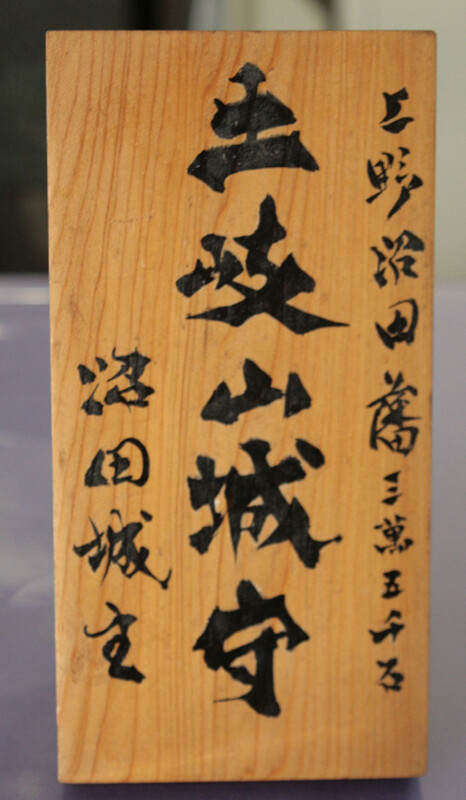 上野沼田藩三萬五千石
土岐山城守
沼田城主